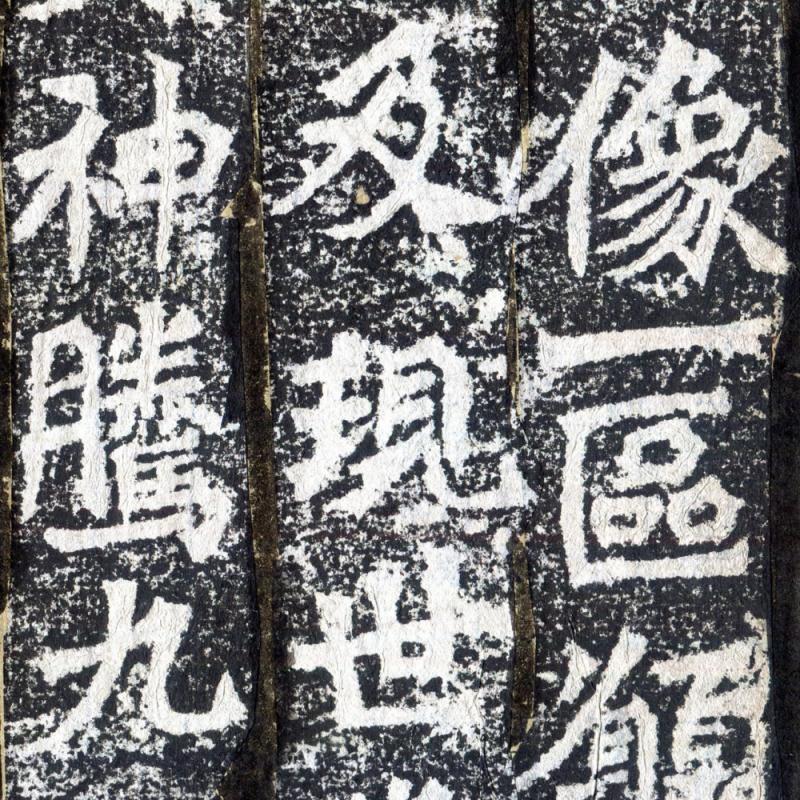 像一區願
及現世
神騰九